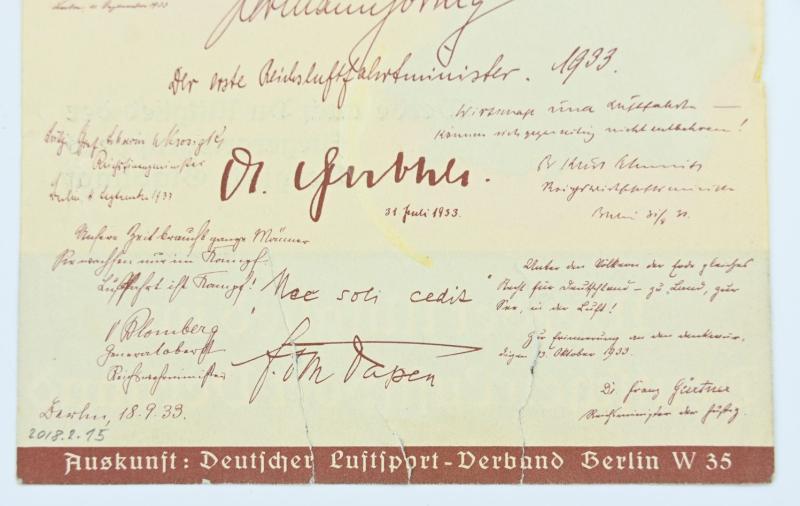 Berlin, 11. September 1933
Hermann Göring
Der erste Reichsluftfahrtminister. 1933.
Wirtschaft und Luftfahrt —
können sich gegenseitig nicht entbehren!
Dr Kurt Schmitt
Reichswirtschaftsminister
Berlin 31/8 33.
Reichsfinanzminister
Berlin, September 1933
Dr. Goebbels.
31 Juli 1933.
Unsere Zeit braucht ganze Männer
Sie wachsen nur im Kampf.
Luftfahrt ist Kampf!
v Blomberg
Generaloberst
Reichswehrminister
Berlin, 18.9.33.
Nec soli cedit
F. v. Papen
Unter den Völkern der Erde gleiches
Recht für Deutschland – zu Land, zur
See, in der Luft!
Zur Erinnerung an den denkwür-
digen 13. Oktober 1933.
Dr. Franz Gürtner
Reichsminister der Justiz.
2018.2.15
Auskunft: Deutscher Luftsport-Verband Berlin W 35